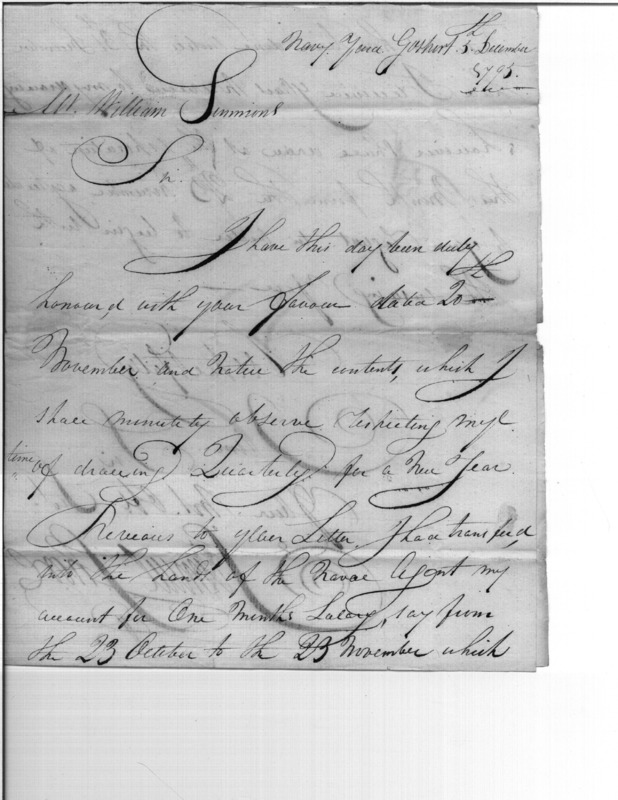 Navy Yard Gosport 5th December
1795.
Mr. William Simmons
Sir.
I have this day been duly
honour,d with your favour dated 20th
November and notice the contents, which I
shall minutely observe respecting my
time of drawing Quarterly for a New Year.
Previous to your Letter, I had transfer,d
into the hands of the Naval Agent my
account for One Months Salary, say from
the 23 October to the 23 November which